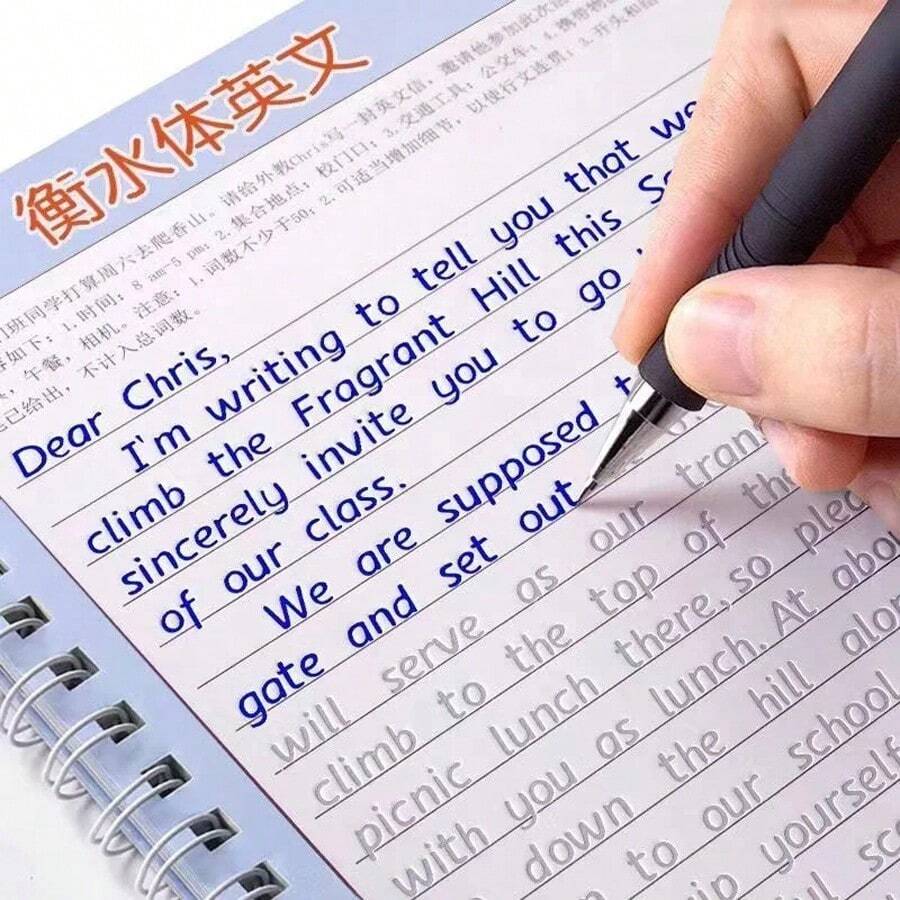 衡水体英文
班同学打算周六去爬香山。请给外教Chris写一封英文信，邀请他参加此次
如下：1.时间：8 am-5 pm；2.集合地点：校门口；3.交通工具：公交车；4.携带物
，午餐，相机。注意：1.词数不少于50；2.可适当增加细节，以使行文连贯；3.开头和
已给出，不计入总词数。
Dear Chris,
I'm writing to tell you that we
climb the Fragrant Hill this
sincerely invite you to go
of our class.
We are supposed
gate and set out
will serve as our
climb to the top of
picnic lunch there, so
with you as lunch. At
down the hill
to our school
yourself